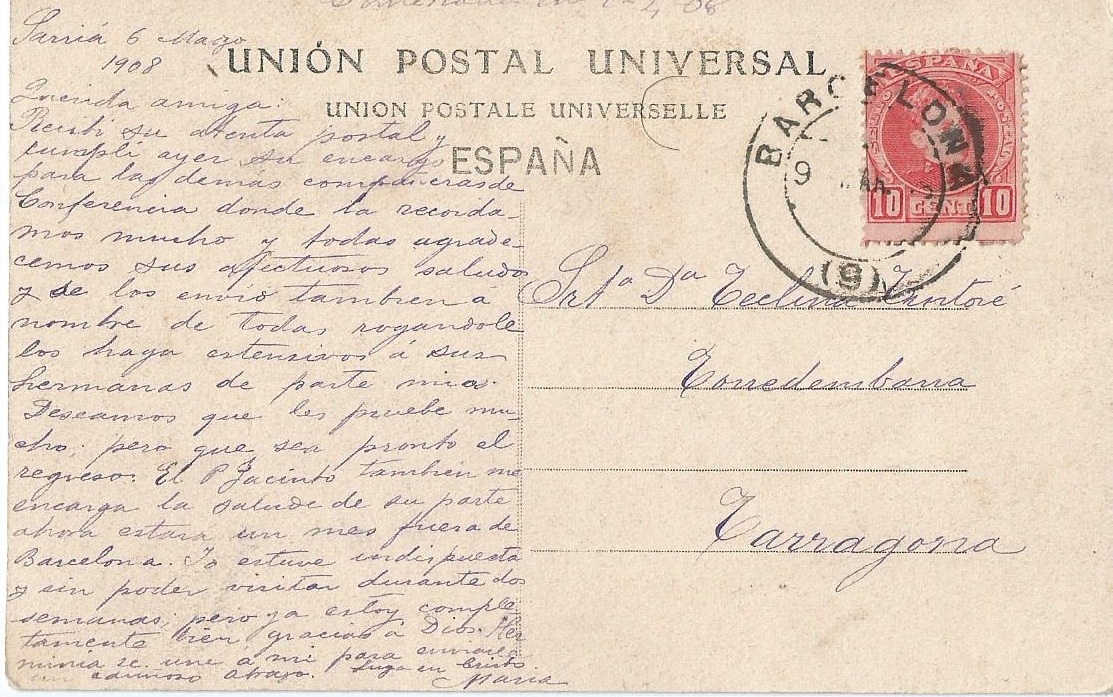 Sarriá 6 Mayo
1908
Querida amiga:
Recibi su atenta postal y
cumpli ayer su encargo
para las demas compañeras de
Conferencia donde la recorda-
mos mucho y todas agrade-
cemos sus afectuosos saludos
y se los envio tambien á
nombre de todas rogandole
los haga estensivos á sus
hermanas de parte mia.
Deseamos que les pruebe mu-
cho; pero que sea pronto el
regreso. El P Jacinto tambien me
encarga la salude de su parte
ahora estara un mes fuera de
Barcelona. Yo estuve indispuesta
y sin poder visitar durante dos
semanas; pero ya estoy comple-
tamente bien gracias a Dios. Her
minia se une á mi para enviarle
un cariñoso abrazo. Suya en Cristo
Maria
1-4-08
UNIÓN POSTAL UNIVERSAL
UNION POSTALE UNIVERSELLE
ESPAÑA
ESPAÑA
10 CENT 10
BARCELONA
9 MAR.
(9)
Srta Da
Torredembarra
Tarragona